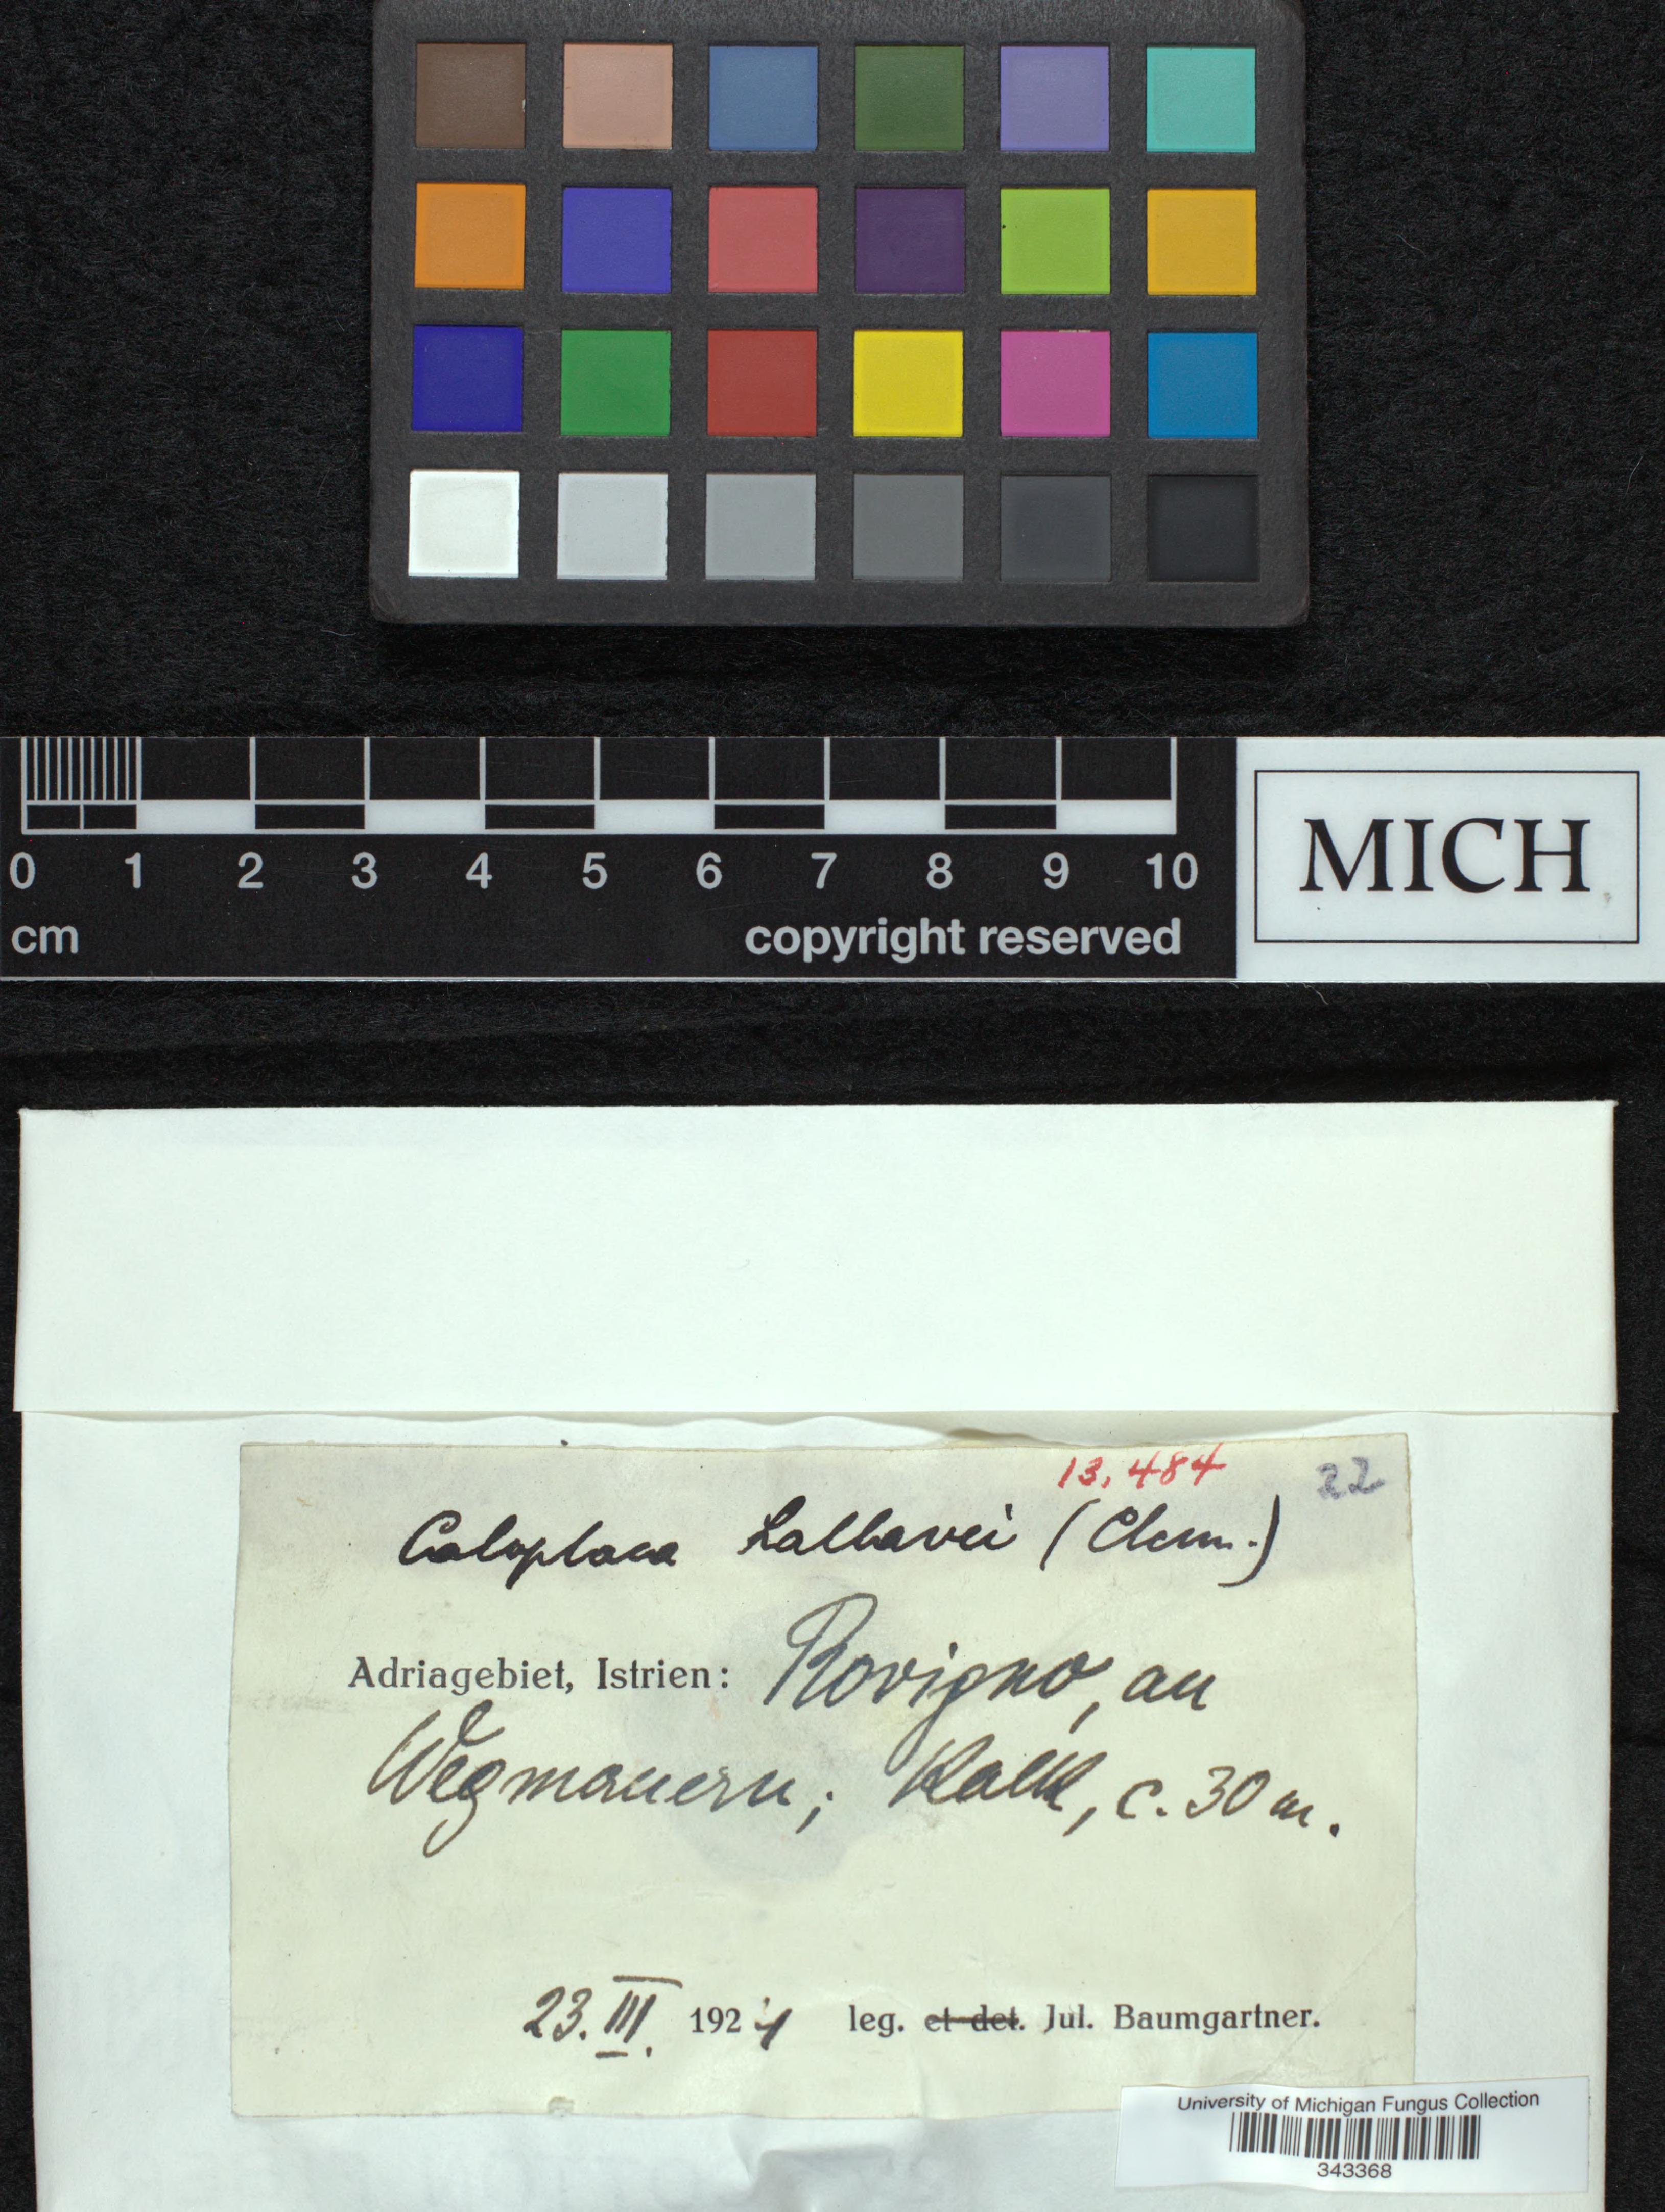 0 1 2 3 4 5 6 7 8 9 10
cm copyright reserved
MICH
13,484 22
Caloplaca Lallavei (Clem.)
Adriagebiet, Istrien: Rovigno, an
Wegmauern; Kalk, c. 30 m.
23. III. 1924 leg. et det. Jul. Baumgartner.
University of Michigan Fungus Collection
343368